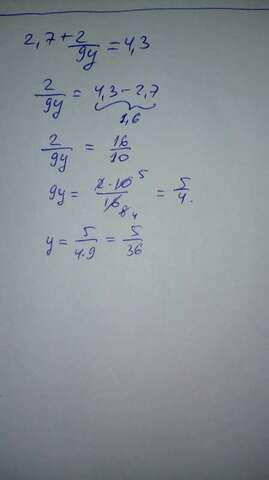 2,7 + 2/9y = 4,3
2/9y = 4,3 - 2,7
1,6
2/9y = 16/10
9y = 2·10 5/16 8 4 = 5/4.
y = 5/4·9 = 5/36